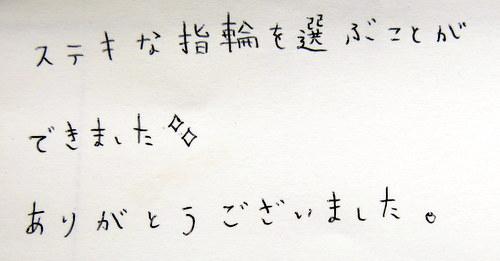 ステキな指輪を選ぶことが
できました✧✧
ありがとうございました。